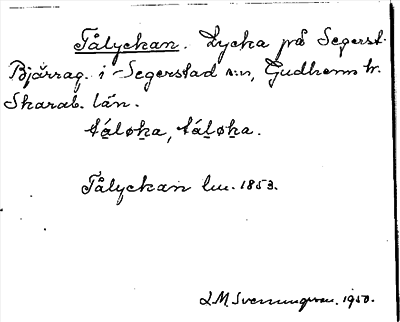 Tålyckan. Lycka på Segerst.
Bjärrag. i Segerstad s:n, Gudhems hr.
Skarab. län.
tåløka, tåløka.
Tålyckan lm. 1853.
L M Svenungsson. 1950.